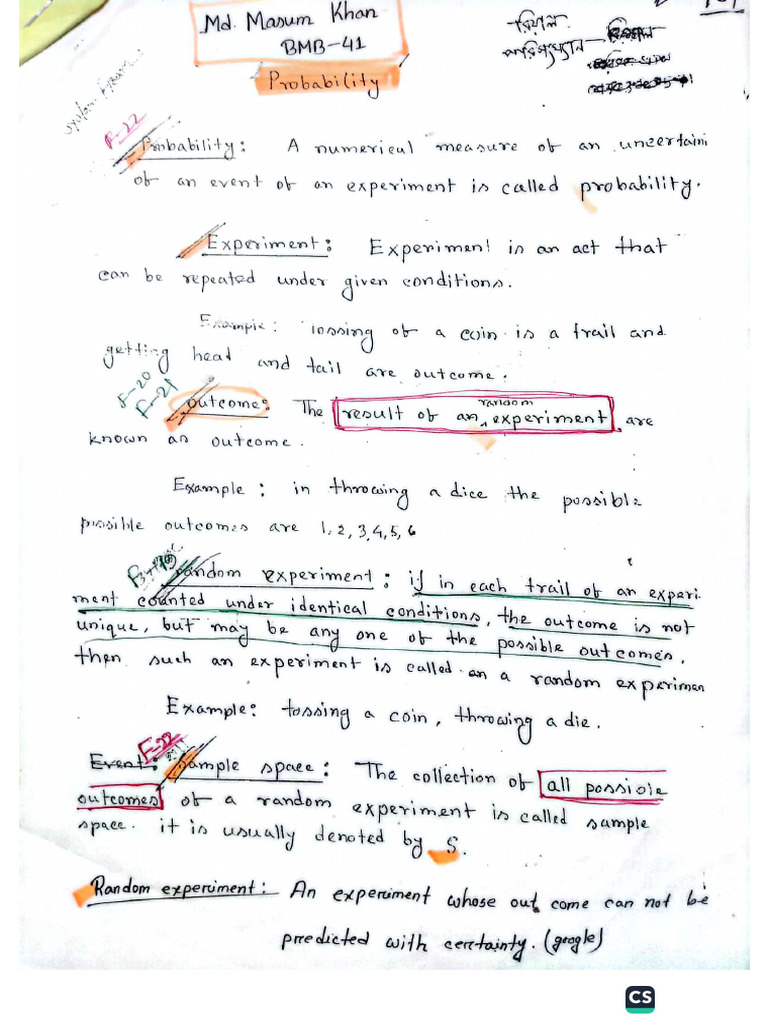 Md. Masum Khan
BMB-41
Probability
রিয়াল
পরিসংখ্যান
F-22
Probability: A numerical measure of an uncertaini
of an event of an experiment is called probability.
Experiment: Experiment is an act that
can be repeated under given conditions.
Example: Tossing of a coin is a trail and
getting head and tail are outcome.
F-20
F-21
Outcome: The result of an random experiment are
known as outcome.
Example: in throwing a dice the possible
possible outcomes are 1, 2, 3, 4, 5, 6
random experiment: if in each trail of an experi-
ment counted under identical conditions, the outcome is not
unique, but may be any one of the possible outcomes,
then such an experiment is called an a random experimen
Example: tossing a coin, throwing a die.
F-22
Event: Sample space: The collection of all possible
outcomes of a random experiment is called sample
space. it is usually denoted by S.
Random experiment: An experiment whose out come can not be
predicted with certainty. (google)
CS